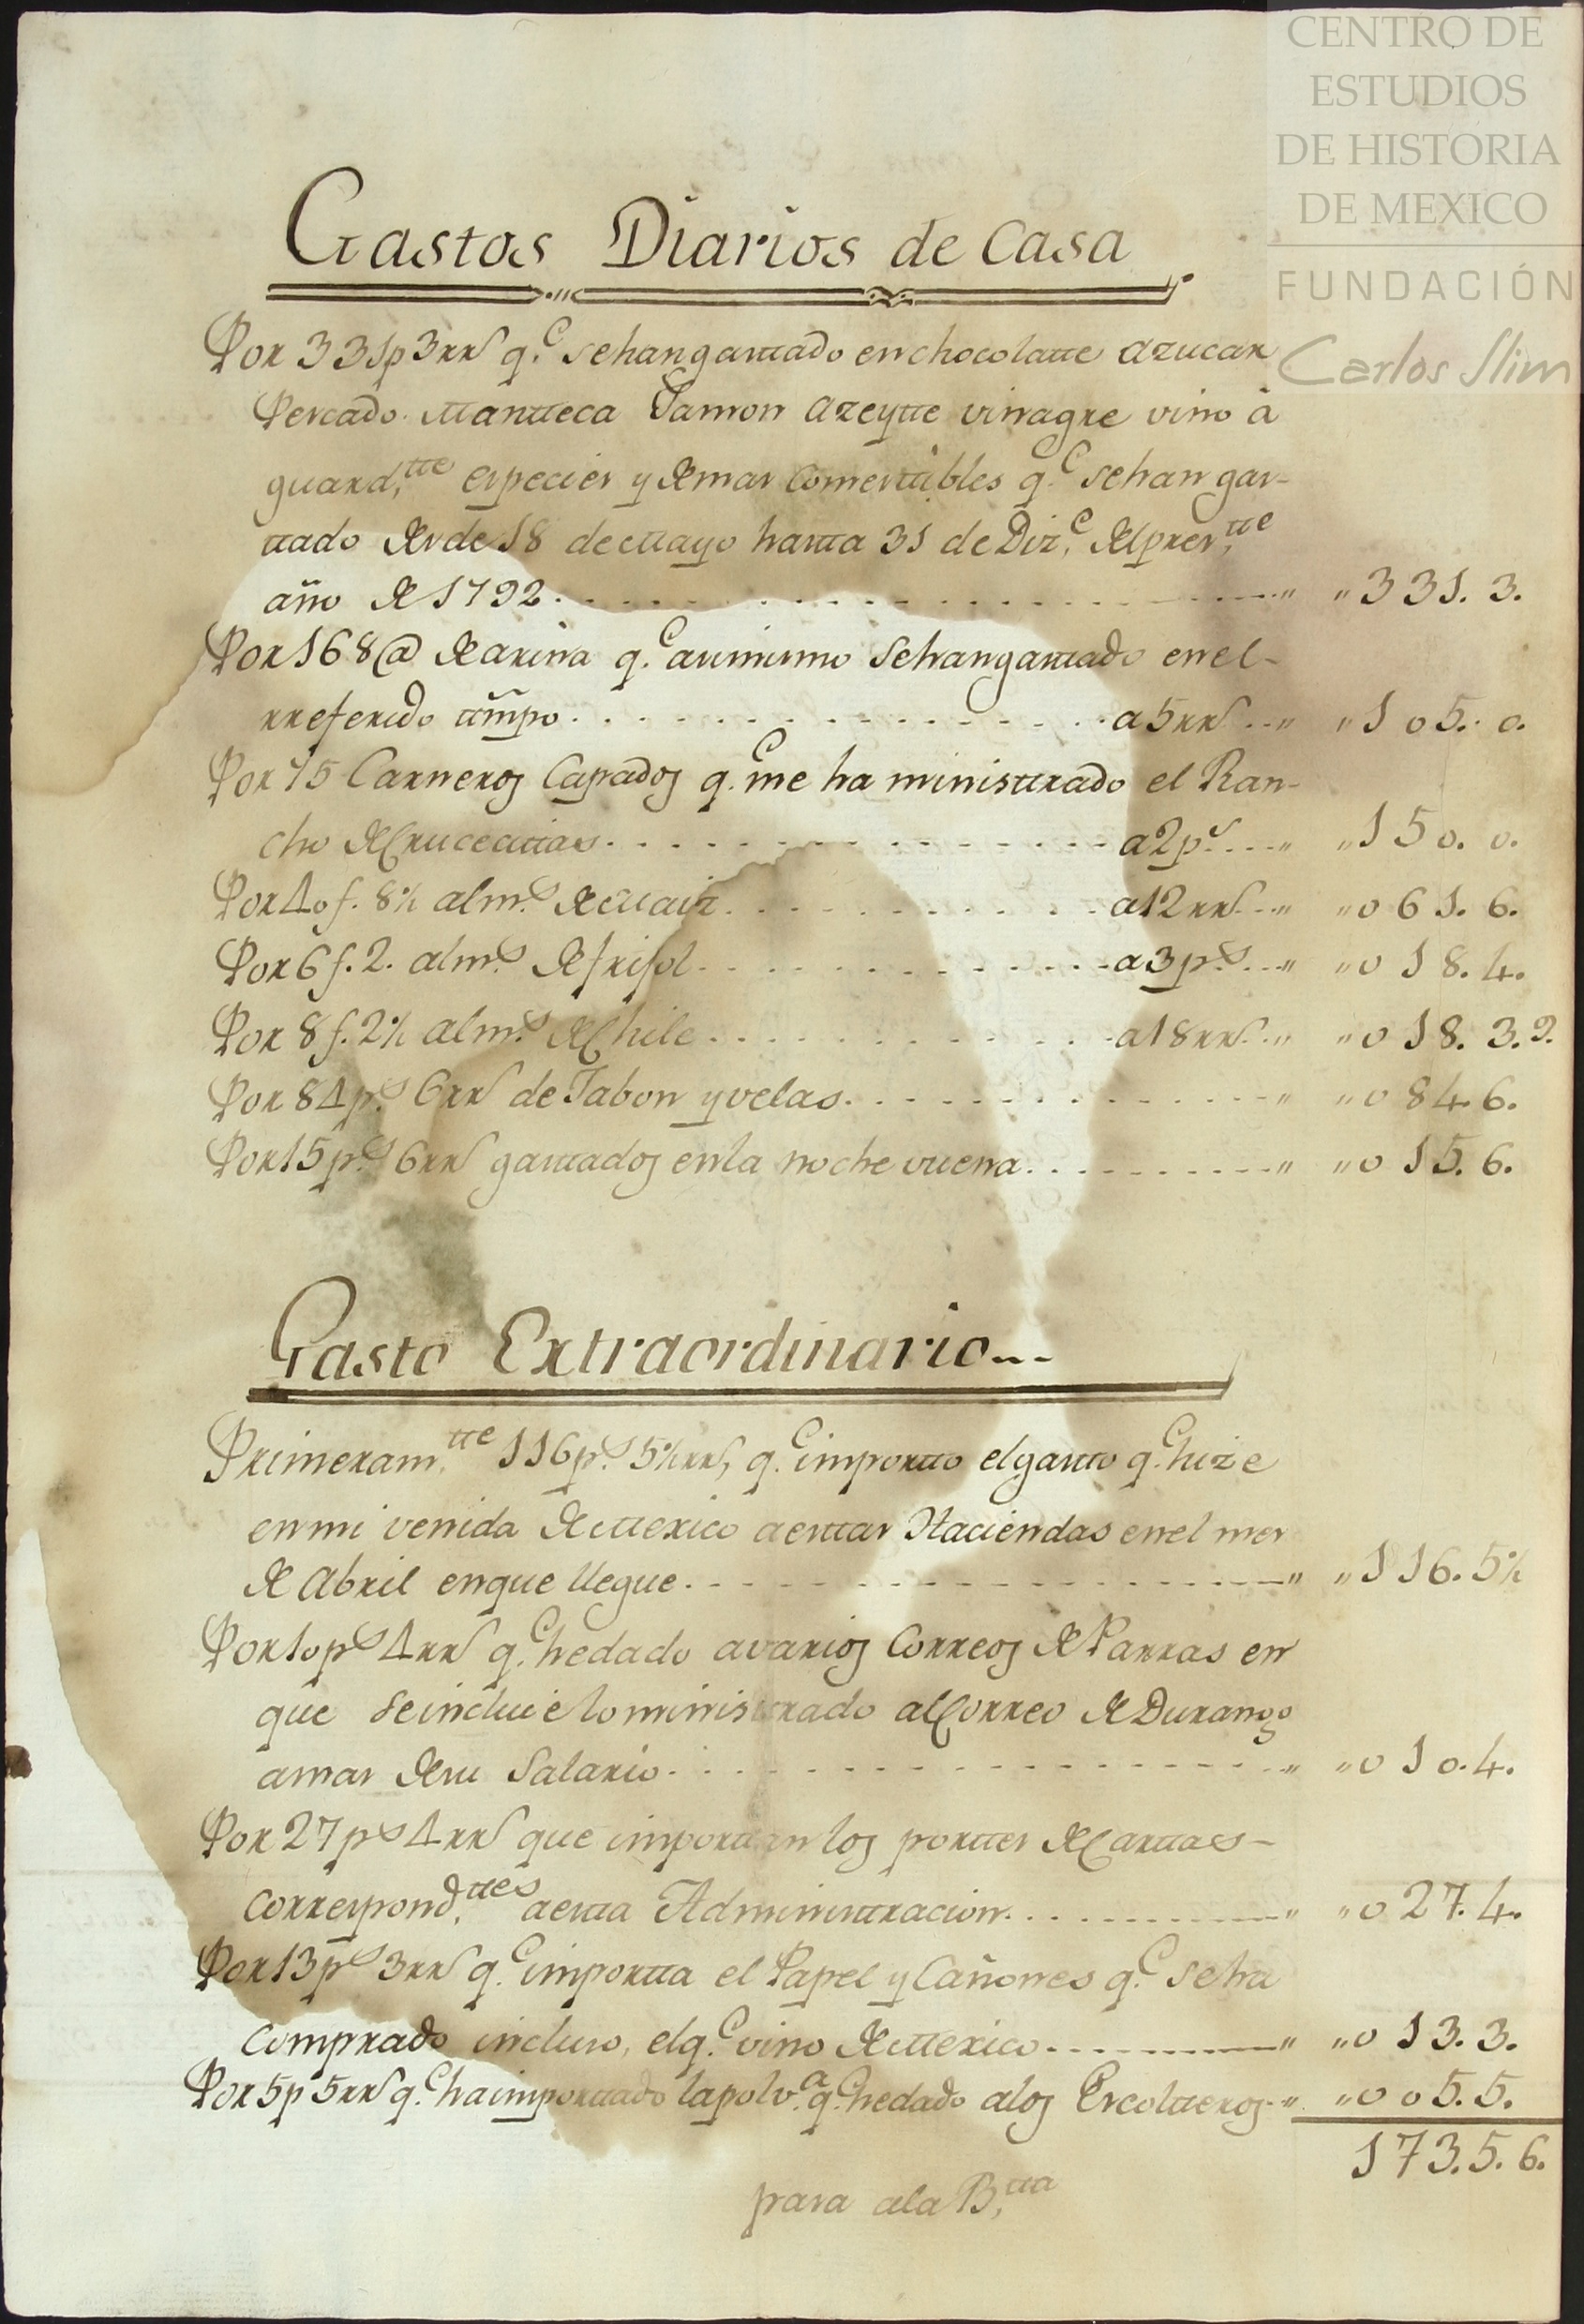 CENTRO DE
ESTUDIOS
DE HISTORIA
DE MEXICO
FUNDACIÓN
Carlos Slim
Gastos Diarios de Casa
Por 331p 3rrs q.e sehangastado enchocolatte azucar
Pescado Mantteca Jamon azeytte vinagre vino à
guard,tte especies y demas comesttibles q.e sehan gas-
ttado desde 18 de Mayo hasta 31 de Diz,e delpres,tte
año de 1792 " " 331. 3.
Por 168@ de arina q.e asimismo sehangastado enel-
rreferido ttmpo a 5rrs " " 105. 0.
Por 75 Carneros Capados q.e me ha ministtrado el Ran-
cho de Crucecittas a 2ps " " 150. 0.
Por 40 f. 8½ alm.s de Maiz a 12rrs " " 0 61. 6.
Por 6 f. 2. alm.s de frisol a 3p.s " " 0 18. 4.
Por 8 f. 2½ alm.s de Chile a 18rrs " " 0 18. 3. 9.
Por 84p.s 6rrs de Jabon y velas " " 0 84. 6.
Por 15p.s 6rrs gastados enla noche vuena " " 0 15. 6.
Gasto Extraordinario
Primeram,tte 116p.s 5½rrs, q.e importto elgasto q.e hize
enmi venida de Mexico aesttas Haciendas enel mes
de Abril enque llegue " " 116. 5½
Por 10ps 4rrs q.e hedado avarios Correos de Parras en
que seincluie lo ministtrado alCorreo de Durango
amas desu Salario " " 0 10. 4.
Por 27ps 4rrs que importtan los porttes de Carttas-
correspond,ttes aesta Administtracion " " 0 27. 4.
Por 13ps 3rrs q.e importta el Papel y Cañones q.e seha
comprado incluso, elq.e vino de Mexico " " 0 13. 3.
Por 5p 5rrs q.e haimporttado lapolv.a q.e hedado alos Escoltteros " " 0 05. 5.
173. 5. 6.
pasa ala B,tta